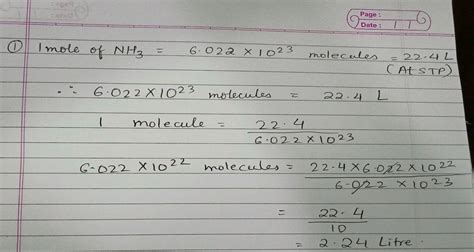 Page :
Date : 11
① 1 mole of NH3 = 6.022 × 10^23 molecules = 22.4 L
(At STP)
∴ 6.022 × 10^23 molecules = 22.4 L
1 molecule = 22.4 / 6.022 × 10^23
6.022 × 10^22 molecules = 22.4 × 6.022 × 10^22 / 6.022 × 10^23
= 22.4 / 10
= 2.24 Litre.